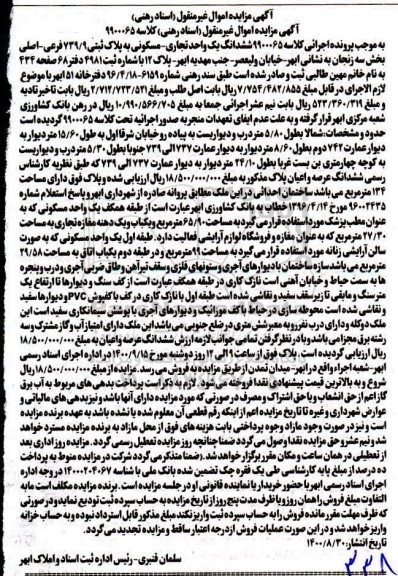 آگهی مزایده اموال غیرمنقول (اسناد رهنی)
آگهی مزایده اموال غیرمنقول (اسناد رهنی) کلاسه ۹۹۰۰۰۶۵
به موجب پرونده اجرائی کلاسه ۹۹۰۰۰۶۵ ششدانگ یک واحد تجاری-مسکونی به پلاک ثبتی ۷۳۹/۹ فرعی-اصلی
بخش سه زنجان به نشانی ابهر-خیابان ولیعصر-جنب مهدیه ابهر-پلاک ۱۲ با شماره ثبت ۴۹۸۱ دفتر ۶۸ صفحه ۴۳۴
به نام خانم مهین طالبی ثبت و صادر شده است طبق سند رهنی شماره ۶۱۵۹-۹۶/۴/۱۸ دفترخانه ۵۱ ابهر با موضوع
لازم الاجرای در قابل مبلغ ۷/۷۵۴/۴۸۲/۸۵۵ ریال بابت اصل طلب و مبلغ ۲/۷۱۲/۷۲۳/۵۳۱ ریال بابت تاخیر تادیه
و مبلغ ۵۲۳/۳۶۰/۳۱۹ ریال بابت نیم عشر اجرائی جمعا به مبلغ ۱۰/۹۹۰/۵۶۶/۷۰۵ ریال در رهن بانک کشاورزی
شعبه مرکزی ابهر قرار گرفته و به علت عدم ایفای تعهدات منجر به صدور اجرائیه تحت کلاسه ۹۹۰۰۰۶۵ گردیده است
حدود و مشخصات: شمالا بطول ۵/۸۰ متر درب و دیواریست به پیاده رو خیابان شرقا اول به طول ۱۵/۶۰ متر دیوار به
دیوار عمارت ۷۴۲ دوم بطول ۸/۶۰ متر دیوار به دیوار عمارت ۷۳۷ الی ۷۳۹ جنوبا بطول ۵/۳۰ متر درب و دیوریست
به کوچه چهارمتری بن بست غربا بطول ۲۴/۱۰ متر دیوار به دیوار عمارت ۷۳۷ الی ۷۳۹ که طبق نظریه کارشناس
رسمی ششدانگ عرصه واعیان پلاک مذکور به مبلغ ۱۸/۵۰۰/۰۰۰/۰۰۰ ریال ارزیابی شده و پلاک فوق دارای مساحت
۱۳۴ مترمربع می باشد ساختمان احداثی در این ملک مطابق پروانه صادره از شهرداری ابهر و پاسخ استعلام شماره
۹۶۰۰۲۴۳۵ مورخ ۱۳۹۶/۴/۱۴ خطاب به بانک کشاورزی ابهر عبارت است از: طبقه همکف یک واحد مسکونی که به
عنوان مطب پزشک مورد استفاده قرار می گیرد به مساحت ۶۵/۹۰ مترمربع و یکباب ویک دهنه مغازه تجاری به مساحت
۲۷/۳۰ مترمربع که به عنوان مغازه و فروشگاه لوازم آرایشی فعالیت دارد. طبقه اول یک واحد مسکونی که به صورت
سالن آرایشی زنانه مورد استفاده قرار می گیرد به مساحت ۹۹ مترمربع و در طبقه دوم یکباب اتاق به مساحت ۲۹/۵۸
مترمربع می باشد سازه ساختمان با دیوارهای آجری وستونهای فلزی و سقف تیرآهن و طاق ضربی آجری و درب و پنجره
ها به سمت حیاط و خیابان آهنی است نازک کاری در طبقه همکف عبارت است از کف سنگ و دیوارها تا ارتفاع یک
متر سنگ و مابقی تا زیر سقف سفید و نقاشی شده است طبقه اول با نازک کاری در کف با کفپوش PVC و دیوارها سفید
و نقاشی شده است محوطه سازی در حیاط با کف موزائیک و دیوارهای آجری با پوشش سیمانکاری سفید است این
ملک دوکله و دارای درب نفررو به معبر شش متری در ضلع جنوبی می باشد این ملک دارای امتیاز آب و گاز مشترک و سه
رشته برق مجزا می باشد و با در نظر گرفتن تمامی جوانب لازمه ارزش ششدانگ عرصه واعیان به مبلغ ۱۸/۵۰۰/۰۰۰/۰۰۰
ریال ارزیابی گردیده است. پلاک فوق از ساعت ۹ الی ۱۲ روز دوشنبه مورخ ۱۴۰۰/۹/۱۵ در اداره اجرای اسناد رسمی
ابهر-شعبه اجراء واقع در ابهر-میدان تمدن از طریق مزایده به فروش می رسد. مزایده از مبلغ ۱۸/۵۰۰/۰۰۰/۰۰۰ ریال
شروع و به بالاترین قیمت پیشنهادی نقدا فروخته می شود. لازم به ذکر است پرداخت بدهی های مربوط به آب برق
گاز اعم از حق انشعاب و یا حق اشتراک و مصرف در صورتی که مورد مزایده دارای آنها باشد و نیز بدهی های مالیاتی و
عوارض شهرداری و غیره تا تاریخ مزایده اعم از اینکه رقم قطعی آن معلوم شده یا نشده باشد به عهده برنده مزایده
است و نیز در صورت وجود مازاد وجوه پرداختی بابت هزینه های فوق از محل مازاد به برنده مزایده مسترد خواهد
شد و نیم عشر و حق مزایده نقدا وصول می گردد ضمنا چنانچه روز مزایده تعطیل رسمی گردد. مزایده روز اداری بعد
از تعطیلی در همان ساعت و مکان مقرر برگزار خواهد شد. (ضمنا متذکر می گردد شرکت در مزایده منوط به پرداخت
ده درصد از مبلغ پایه کارشناسی طی یک فقره چک تضمین شده بانک ملی با شناسه ۱۴۰۰۰۲۰۴۰۶۷ در وجه اداره
اجرای اسناد رسمی ابهر با حضور خریدار یا نماینده قانونی او در جلسه مزایده است. برنده مزایده مکلف است مابه
التفاوت مبلغ فروش را همان روز و یا ظرف مدت پنج روز از تاریخ مزایده به حساب سپرده ثبت تودیع نماید و در صورتی
که ظرف مهلت مقرر مانده فروش را به حساب سپرده ثبت واریز نکند مبلغ مذکور قابل استرداد نبوده و به حساب خزانه
واریز خواهد شد و در این صورت عملیات فروش از درجه اعتبار ساقط و مزایده تجدید می گردد.
تاریخ انتشار: ۱۴۰۰/۸/۳۰
سلمان قنبری-رئیس اداره ثبت اسناد و املاک ابهر
۳۳۸